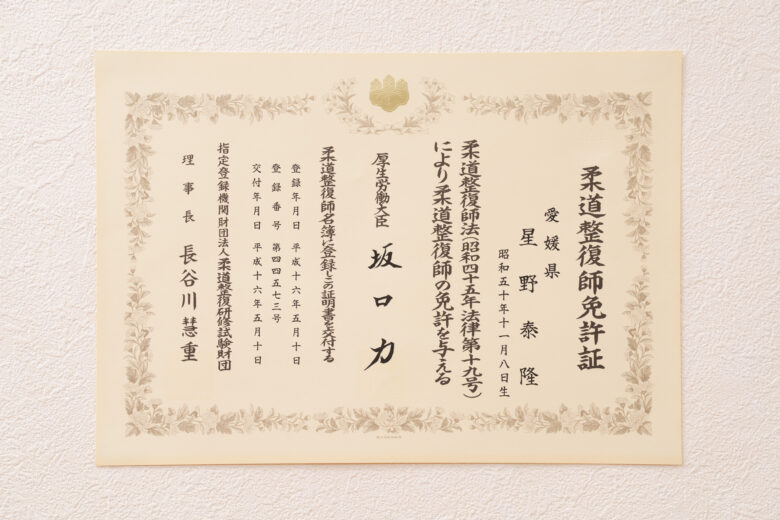 柔道整復師免許証
愛媛県
星野泰隆
昭和五十年十一月八日生
柔道整復師法(昭和四十五年法律第十九号)
により柔道整復師の免許を与える
厚生労働大臣 坂口力
柔道整復師名簿に登録しこの証明書を交付する
登録年月日 平成十六年五月十日
登録番号 第四四五七三号
交付年月日 平成十六年五月十日
指定登録機関財団法人柔道整復研修試験財団
理事長 長谷川慧重